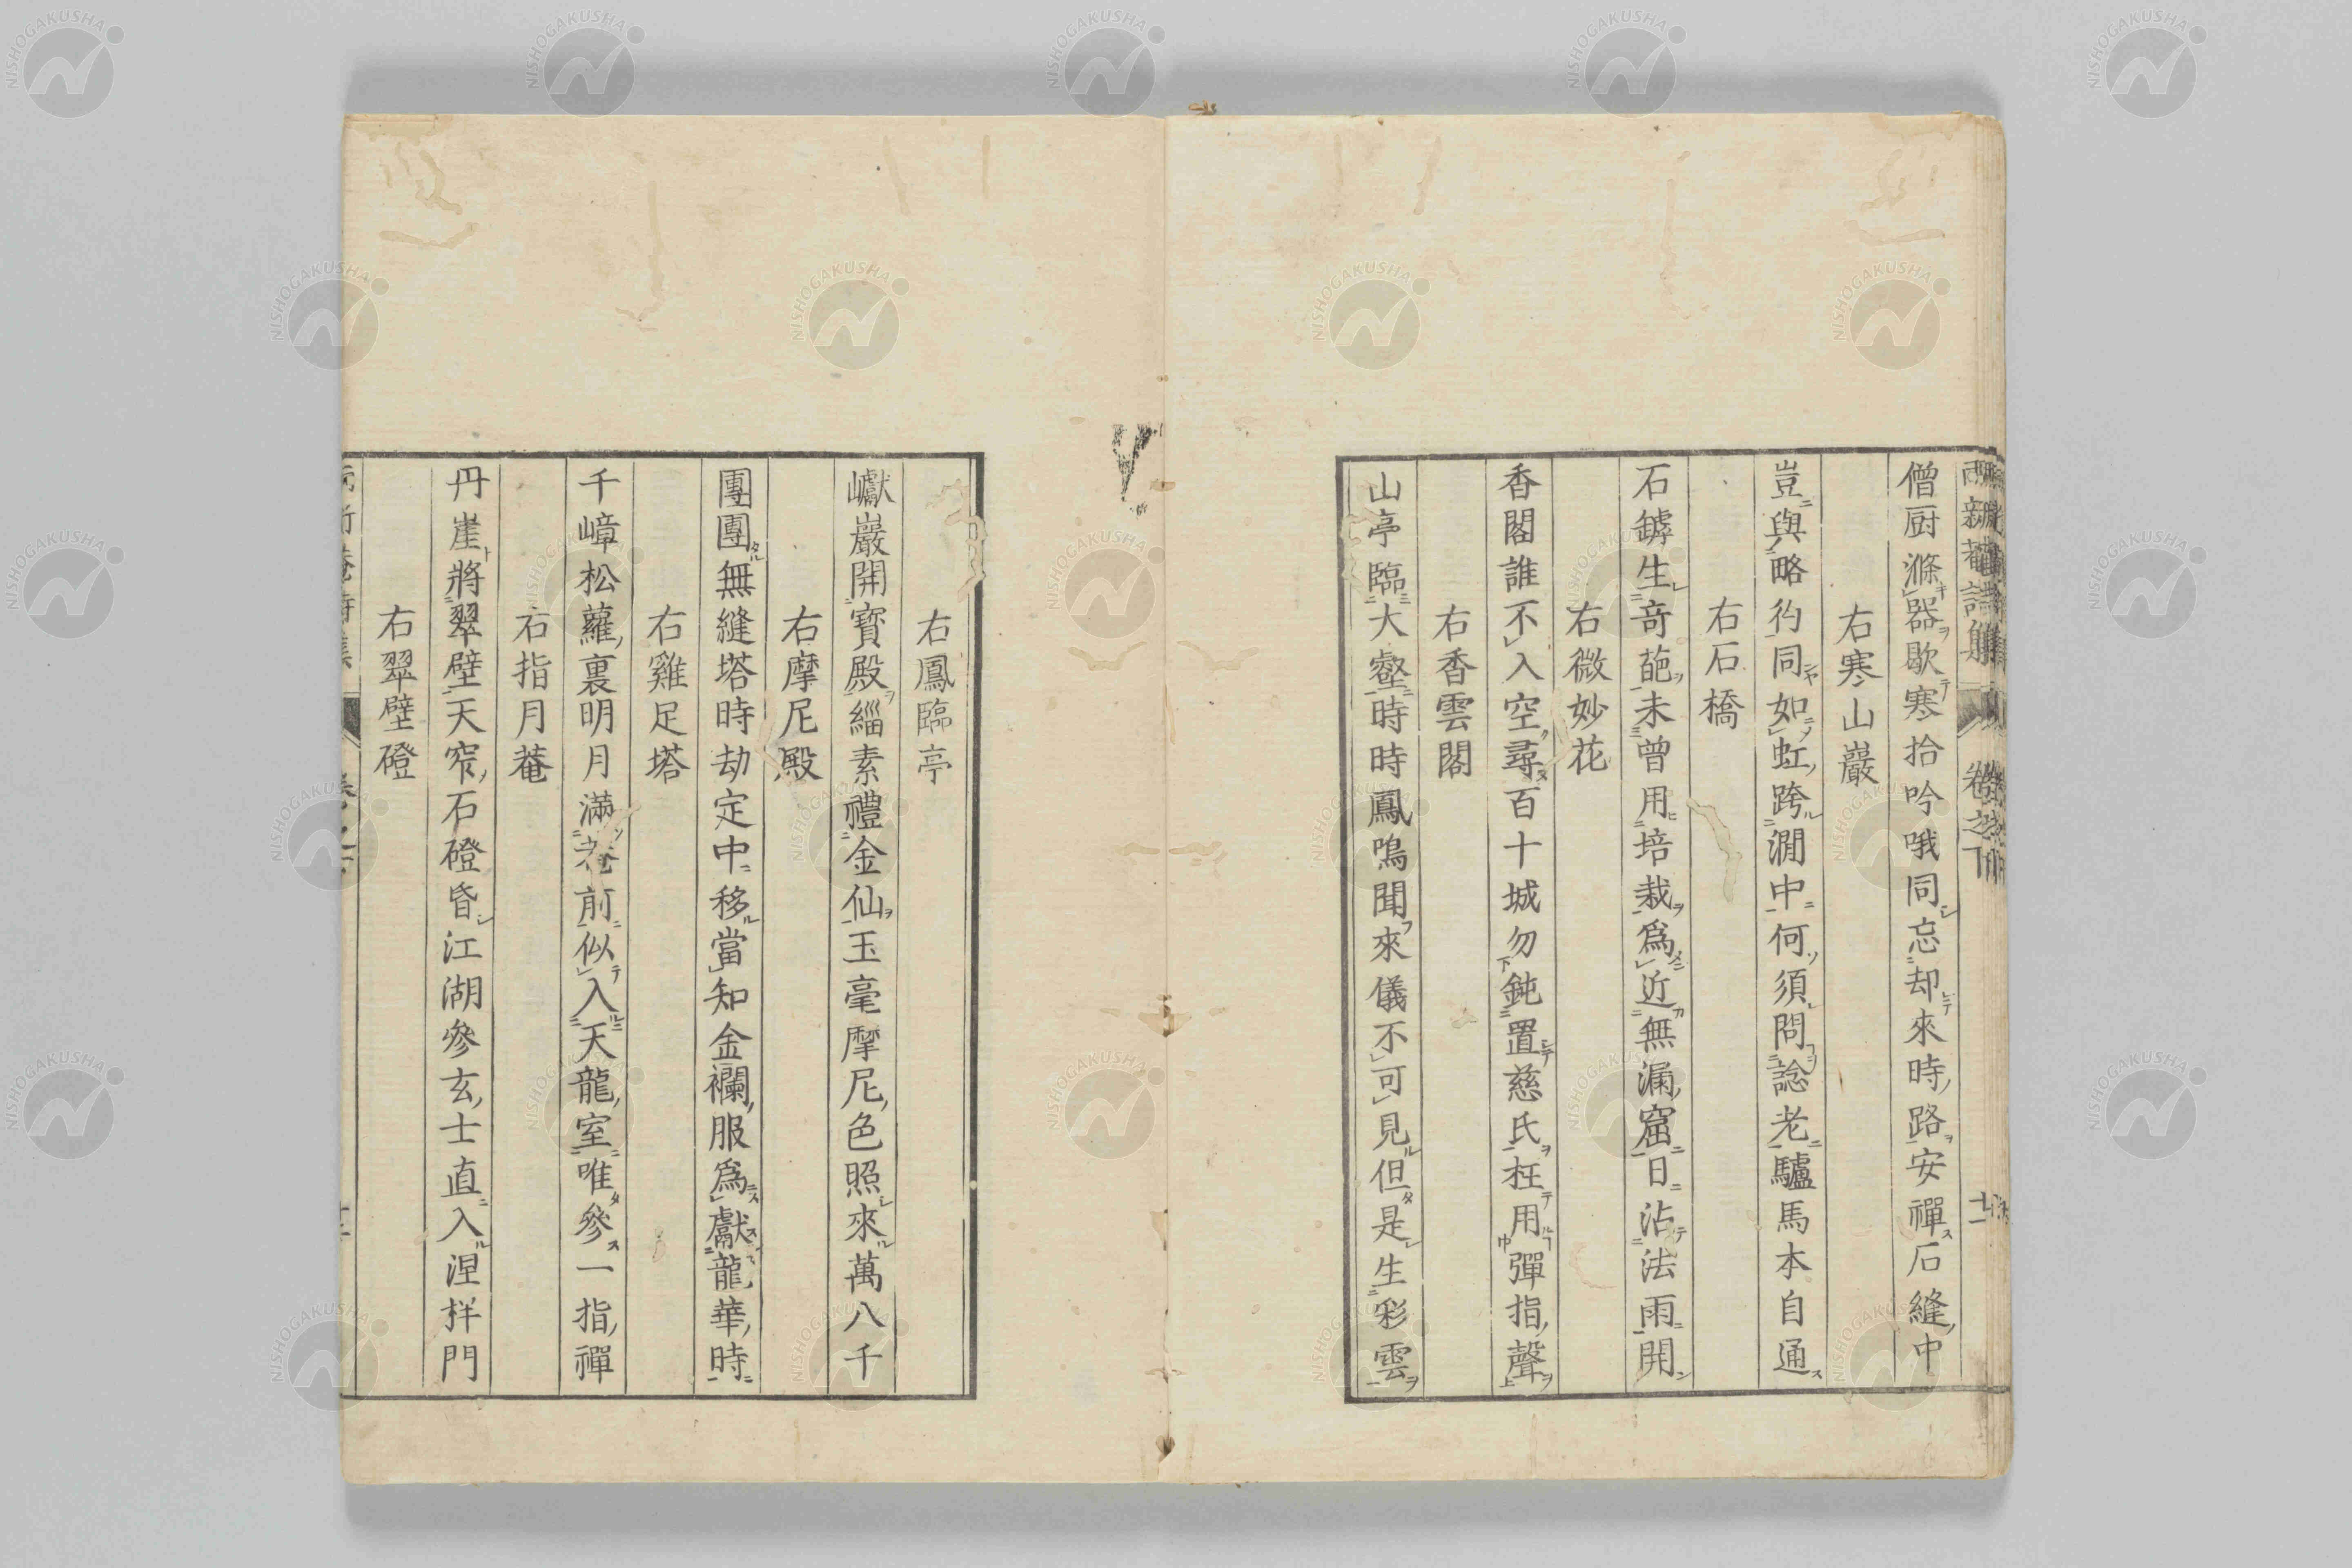 僧厨滌器歇寒拾吟哦同忘却來時路安禪石縫中
右寒山巖
豈與略彴同如虹跨澗中何須問諗老驢馬本自通
右石橋
石罅生奇葩未曾用培栽爲近無漏窟日沾法雨開
右微妙花
香閣誰不入空尋百十城勿鈍置慈氏枉用彈指聲
右香雲閣
山亭臨大壑時時鳳鳴聞來儀不可見但是生彩雲
右鳳臨亭
巘巖開寳殿緇素禮金仙玉毫摩尼色照來萬八千
右摩尼殿
團團無縫塔時劫定中移當知金襴服爲獻龍華時
右雞足塔
千嶂松蘿裏明月滿菴前似入天龍室唯參一指禪
右指月菴
丹崖將翠壁天窄石磴昏江湖參玄士直入涅槃門
右翠壁磴
卷之下
NISHOGAKUSHA